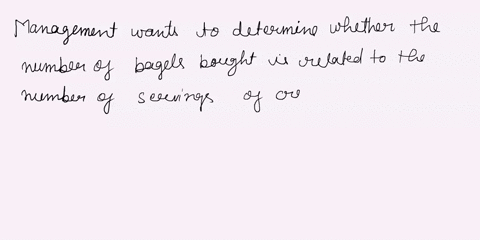 Management wants to determine whether the
number of bagels bought is related to the
number of servings of cr